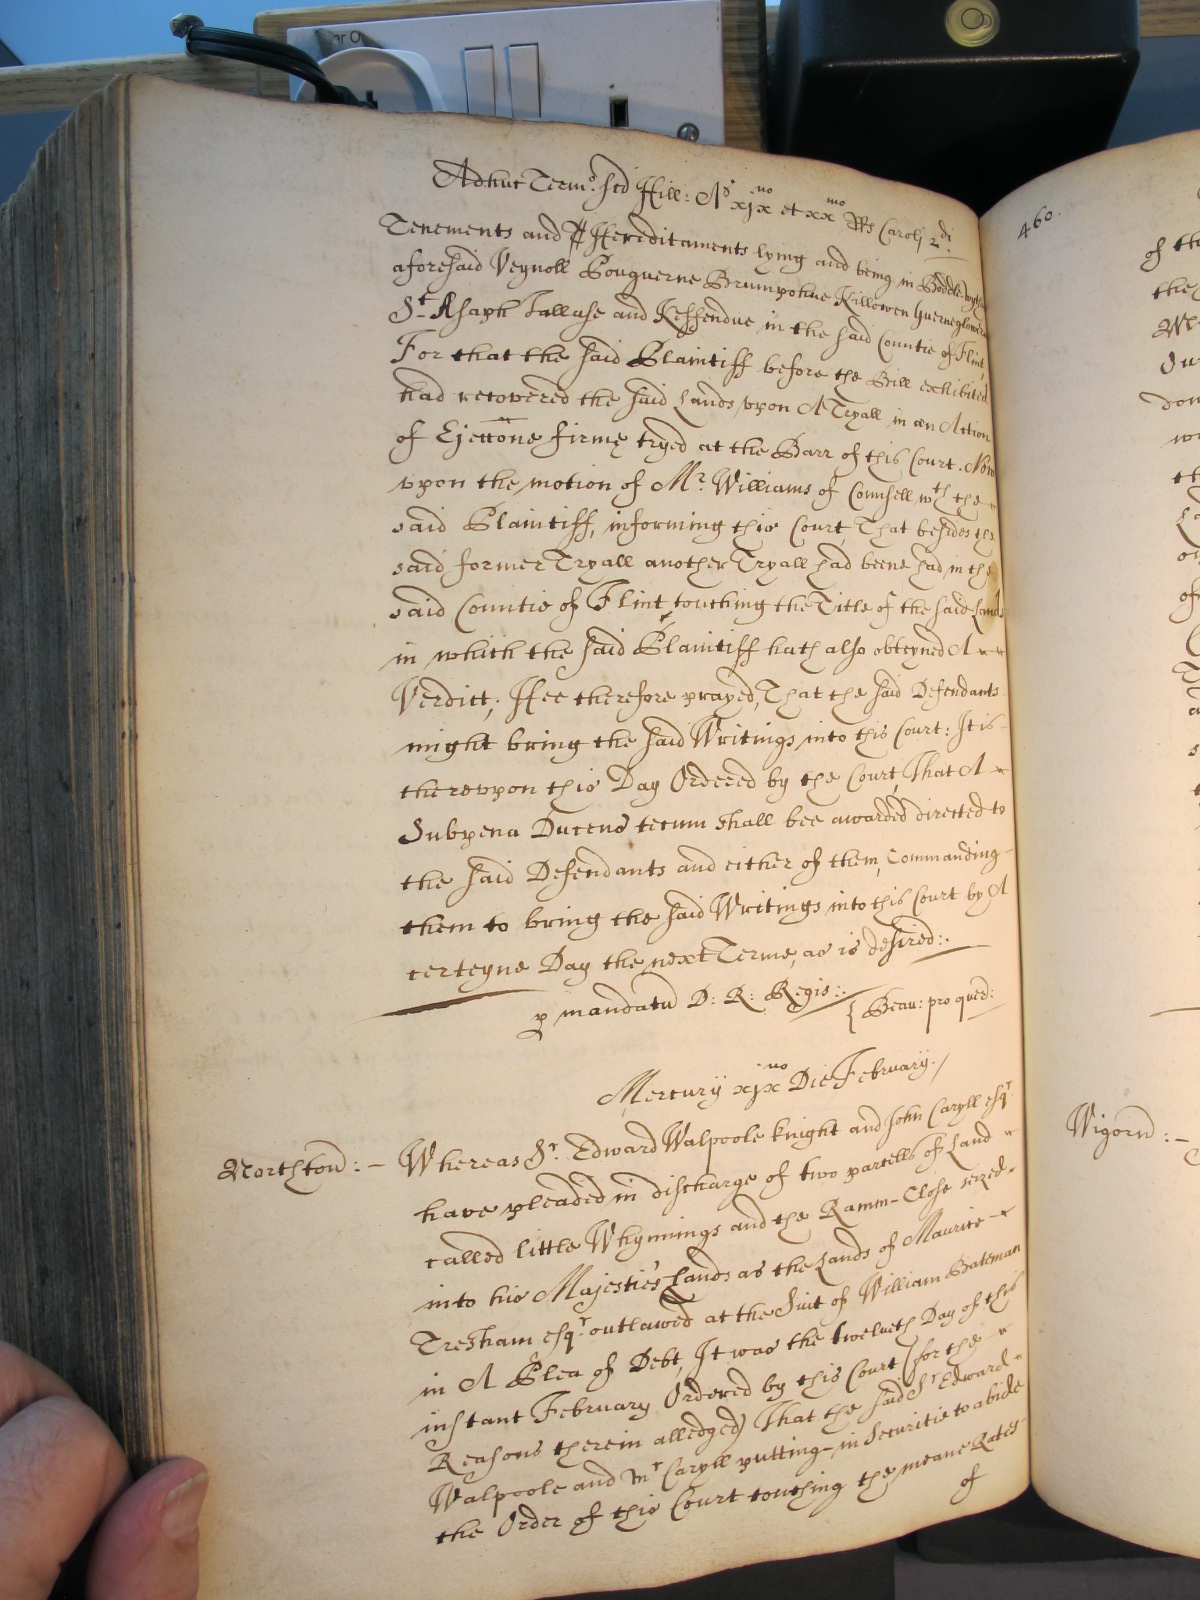 Adhuc Termo: Scd Hill: Ao xjx no et xx mo Rs Caroli 2 di.
Tenements and Hereditaments lying and being in
aforesaid Veynoll Bouguerne Brumpohue Killowen
St Asaph Tallase and Keffendue in the said Countie of Flint,
For that the said Plaintiff before the Bill exhibited
had recovered the said Lands vpon A Tryall in an Action
of Ejeccone firme tryed at the Barr of this Court. Now
vpon the motion of Mr. Williams of Counsell wth the
said Plaintiff, informing this Court, That besides the
said former Tryall another Tryall had beene had in the
said Countie of Flint touching the Title of the said Lands
in which the said Plaintiff hath also obteyned A
Verdict; Hee therefore prayed, That the said Defendants
might bring the said Writings into this Court: It is
therevpon this Day Ordered by the Court, That A
Subpena Ducens tecum shall bee awarded directed to
the said Defendants and either of them, Commanding
them to bring the said Writings into this Court by A
certeyne Day the next Terme, as is desired:.
p mandatu D: R: Regis:. { Beau: pro quer:
Mercurij xjx no Die February./
Northton: - Whereas Sr. Edward Walpoole Knight and John Caryll esqr
have pleaded in discharge of two parcells of Land
called little Whynnings and the Ramm-Close seized
into his Majesties Lands as the Lands of Maurice
Tresham esqr. outlawed at the Suit of William Bateman
in A Plea of Debt, It was the twelveth Day of this
instant February Ordered by this Court (for the
Reasons therein alledged) That the said Sr Edward
Walpoole and Mr Caryll putting in Securitie to abide
the Order of this Court touching the meane Rates
of
460.
of the
the
Wigorn: -